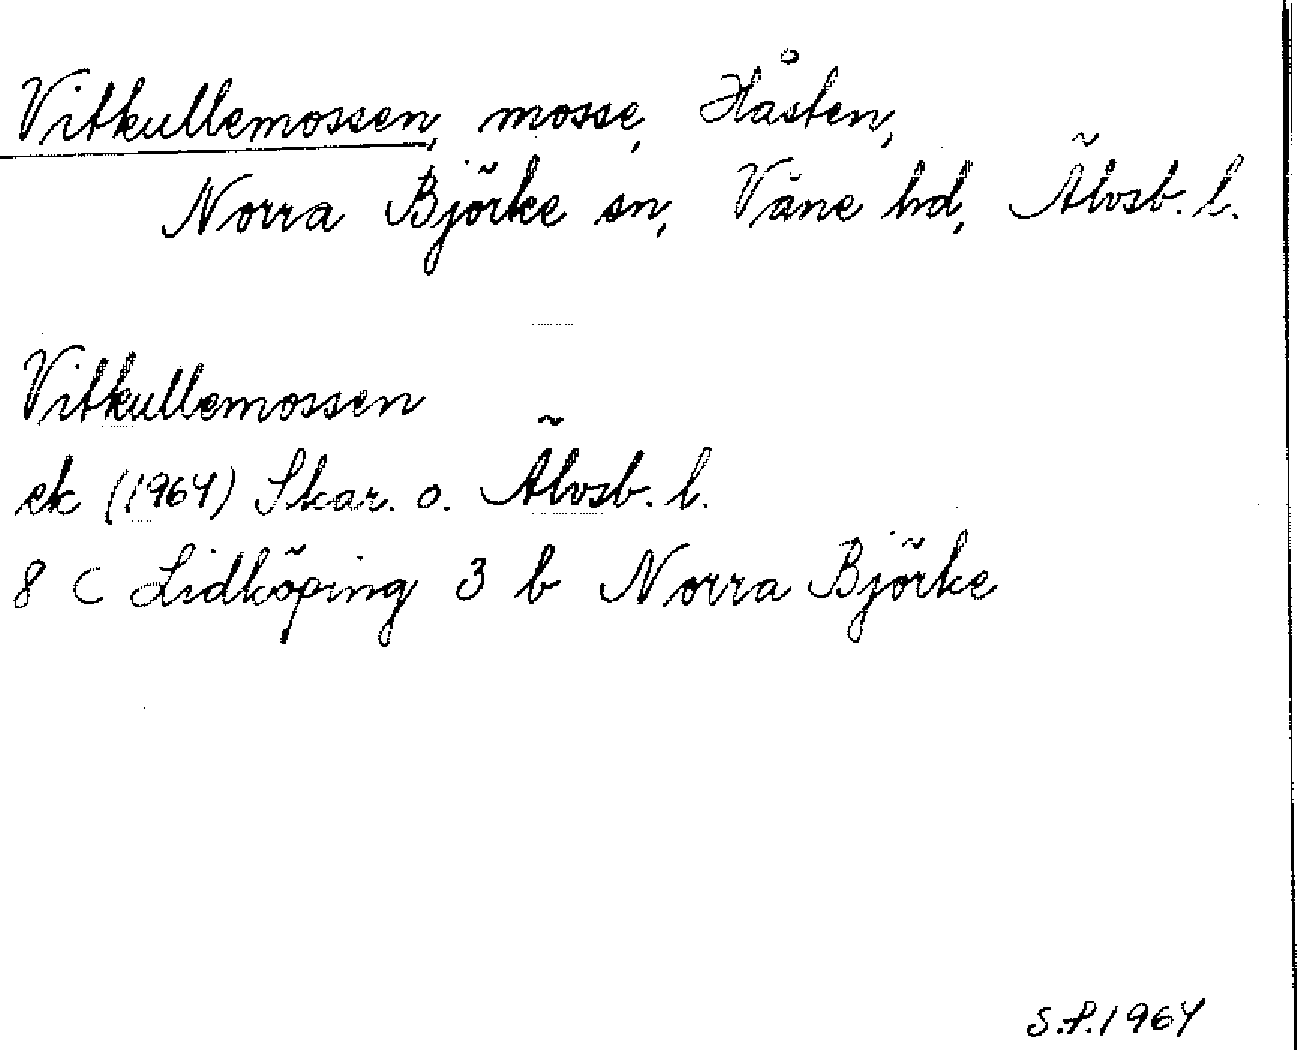 Vitkullemossen, mosse, Håsten,
Norra Björke sn, Väne hd, Älvsb. l.
Vitkullemossen
ek (1964) Skar. o. Älvsb. l.
8 C Lidköping 3 b Norra Björke
S.P. 1964